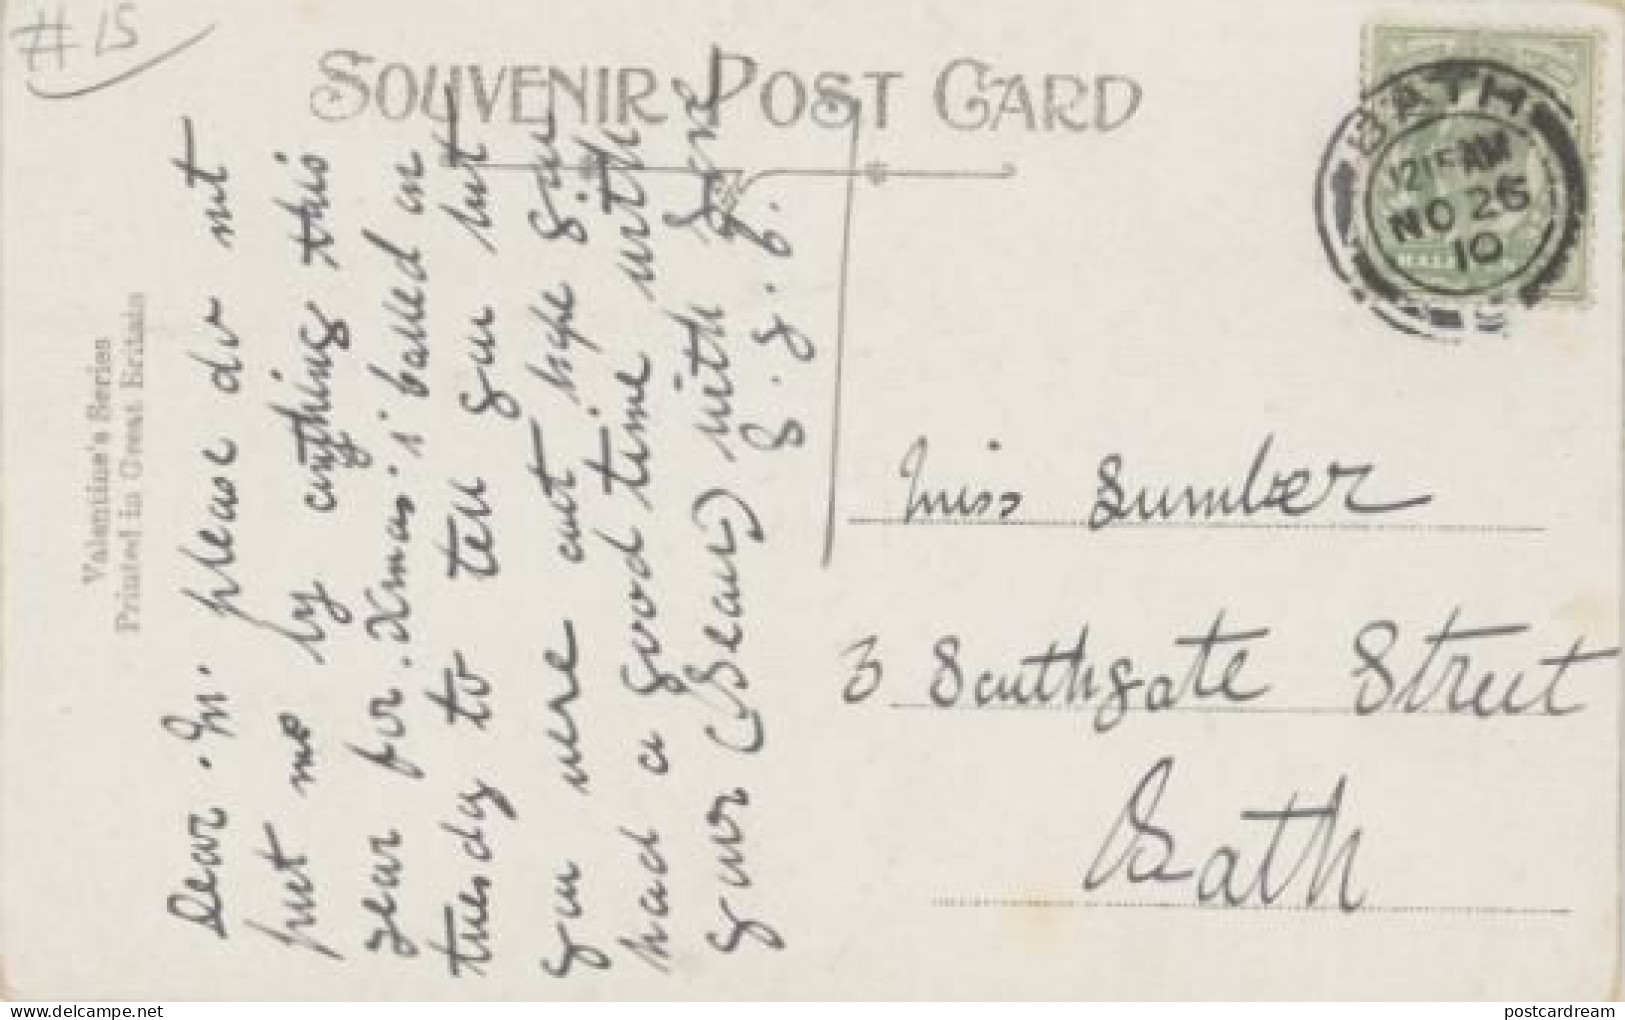 #15
SOUVENIR POST CARD
Valentine's Series
Printed in Great Britain
BATH
1215 AM
NO 26
10
Dear . M. please do not
put me by anything this
year for . Xmas i called in
tuesday to tell you but
you were out hope you
had a good time with
your (Beau) with love
S. J. G.
Miss Sumber
3 Southgate Street
Bath
www.delcampe.net
postcardream